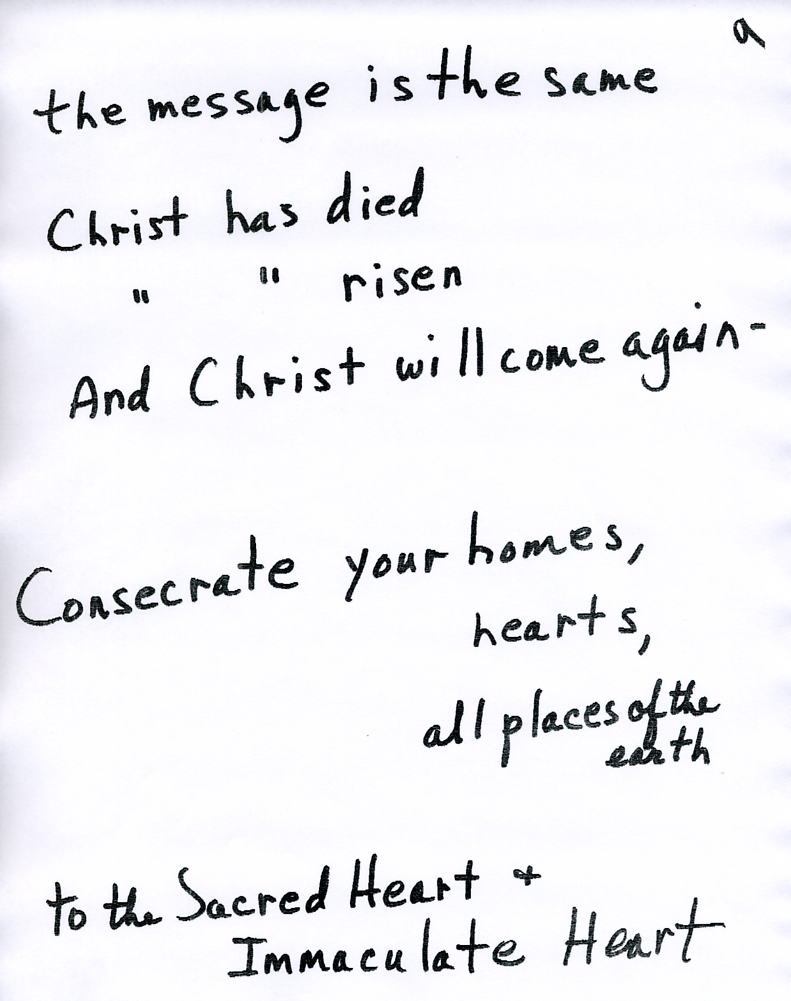 9
the message is the same
Christ has died
" " risen
And Christ will come again-
Consecrate your homes,
hearts,
all places of the
earth
to the Sacred Heart +
Immaculate Heart